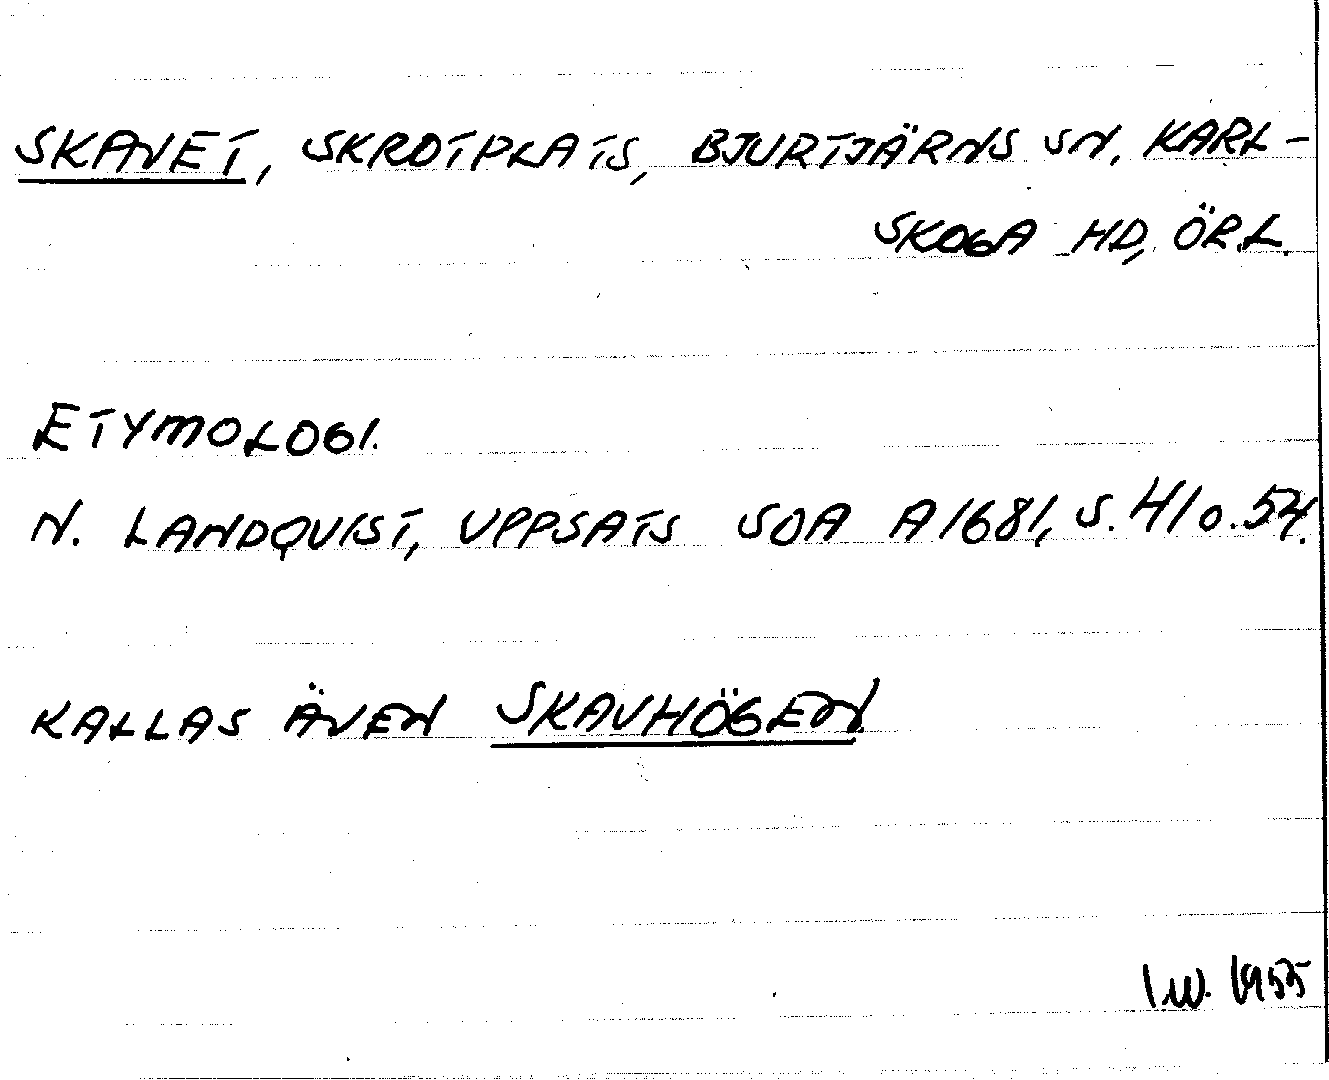 SKAVET, SKROTPLATS, BJURTJÄRNS SN, KARL-
SKOGA HD, ÖR.L.
ETYMOLOGI.
N. LANDQVIST, UPPSATS SOA A1681, S. 41 o. 54.
KALLAS ÄVEN SKAVHÖGEN.
I.W. 1955